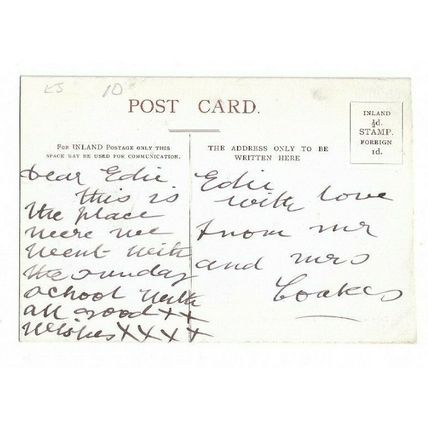 KJ 10
POST CARD.
FOR INLAND POSTAGE ONLY THIS
SPACE MAY BE USED FOR COMMUNICATION.
THE ADDRESS ONLY TO BE
WRITTEN HERE
INLAND
½d.
STAMP.
FOREIGN
1d.
Dear Edie
this is
the place
were we
went with
the sunday
school with
all good XX
wishes XXXX
Edie
with love
from mr
and mrs
Coakes